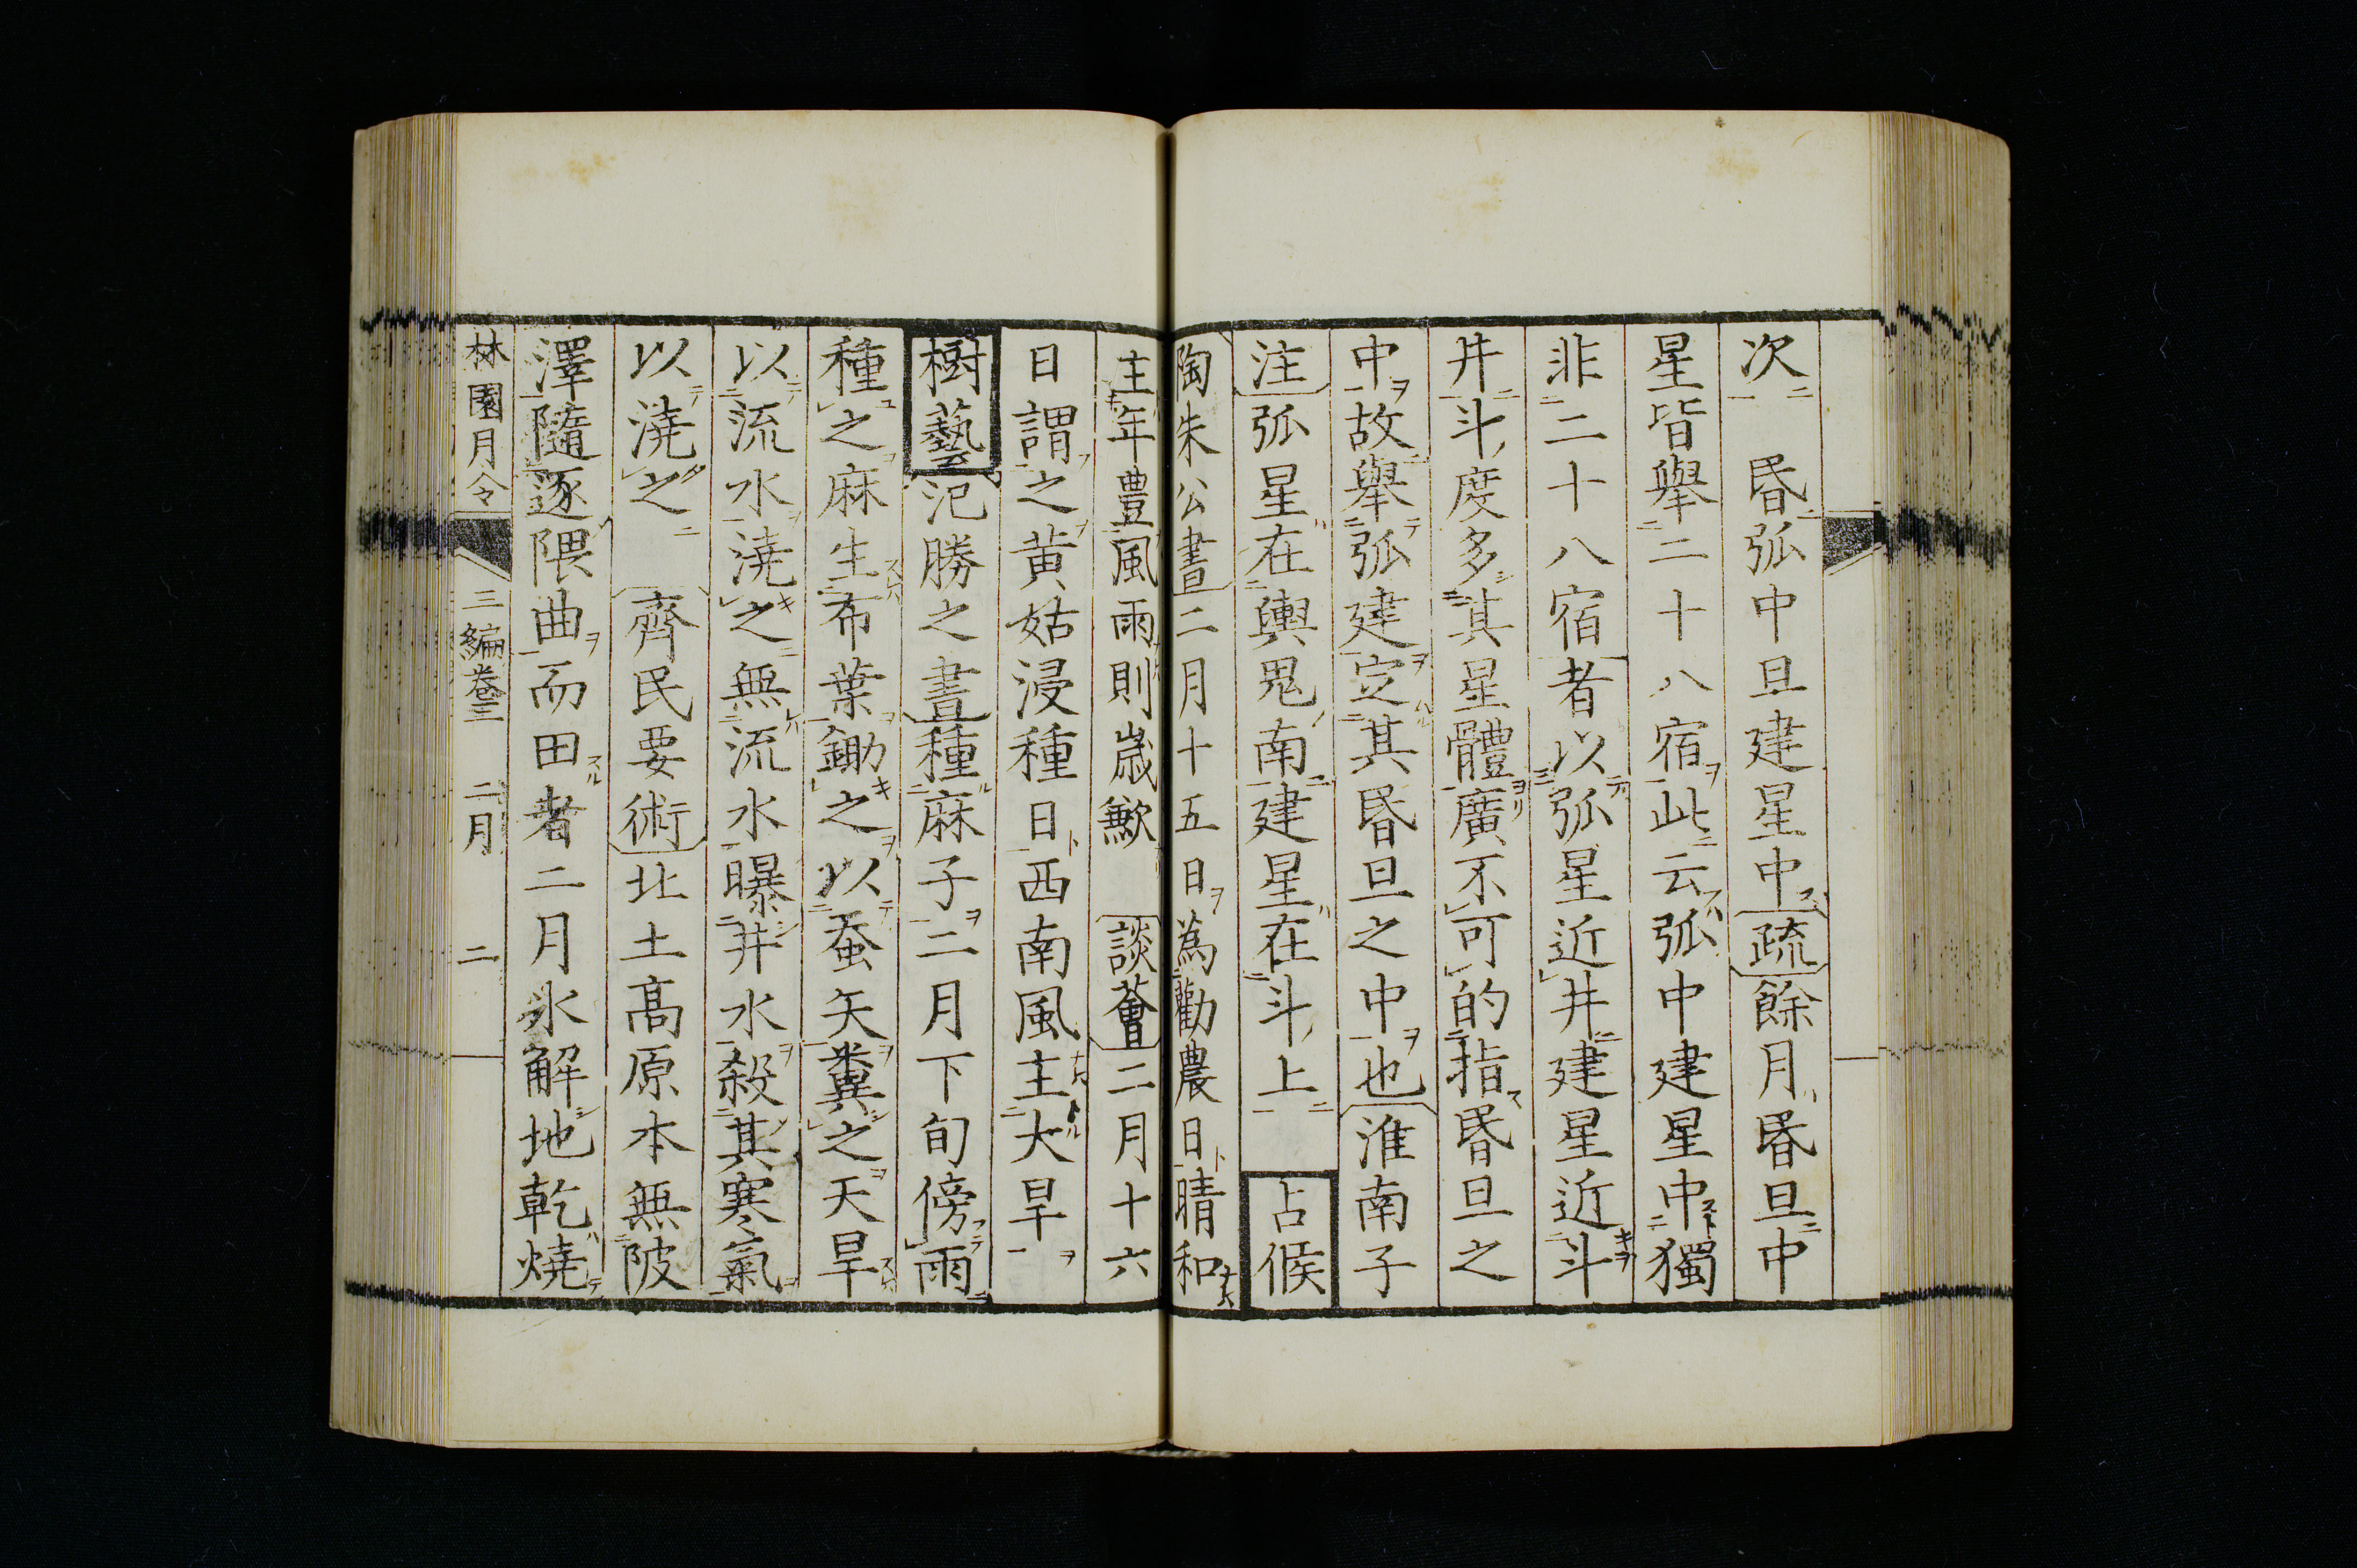 次　昏弧中旦建星中疏餘月昏旦中
星皆舉二十八宿此云弧中建星中獨
非二十八宿者以弧星近井建星近斗
井斗度多其星體廣不可的指昏旦之
中故舉弧建定其昏旦之中也淮南子
注弧星在輿鬼南建星在斗上　占候
陶朱公書二月十五日為勸農日晴和
主年豊風雨則歳歉　談薈二月十六
日謂之黄姑浸種日西南風主大旱
樹藝氾勝之書種麻子二月下旬傍雨
種之麻生布葉鋤之以蚕矢糞之天旱
以流水澆之無流水曝井水殺其寒氣
以澆之　齊民要術北土髙原本無陂
澤隨逐隈曲而田者二月氷解地乾燒
林園月令　三編巻三　二月　二